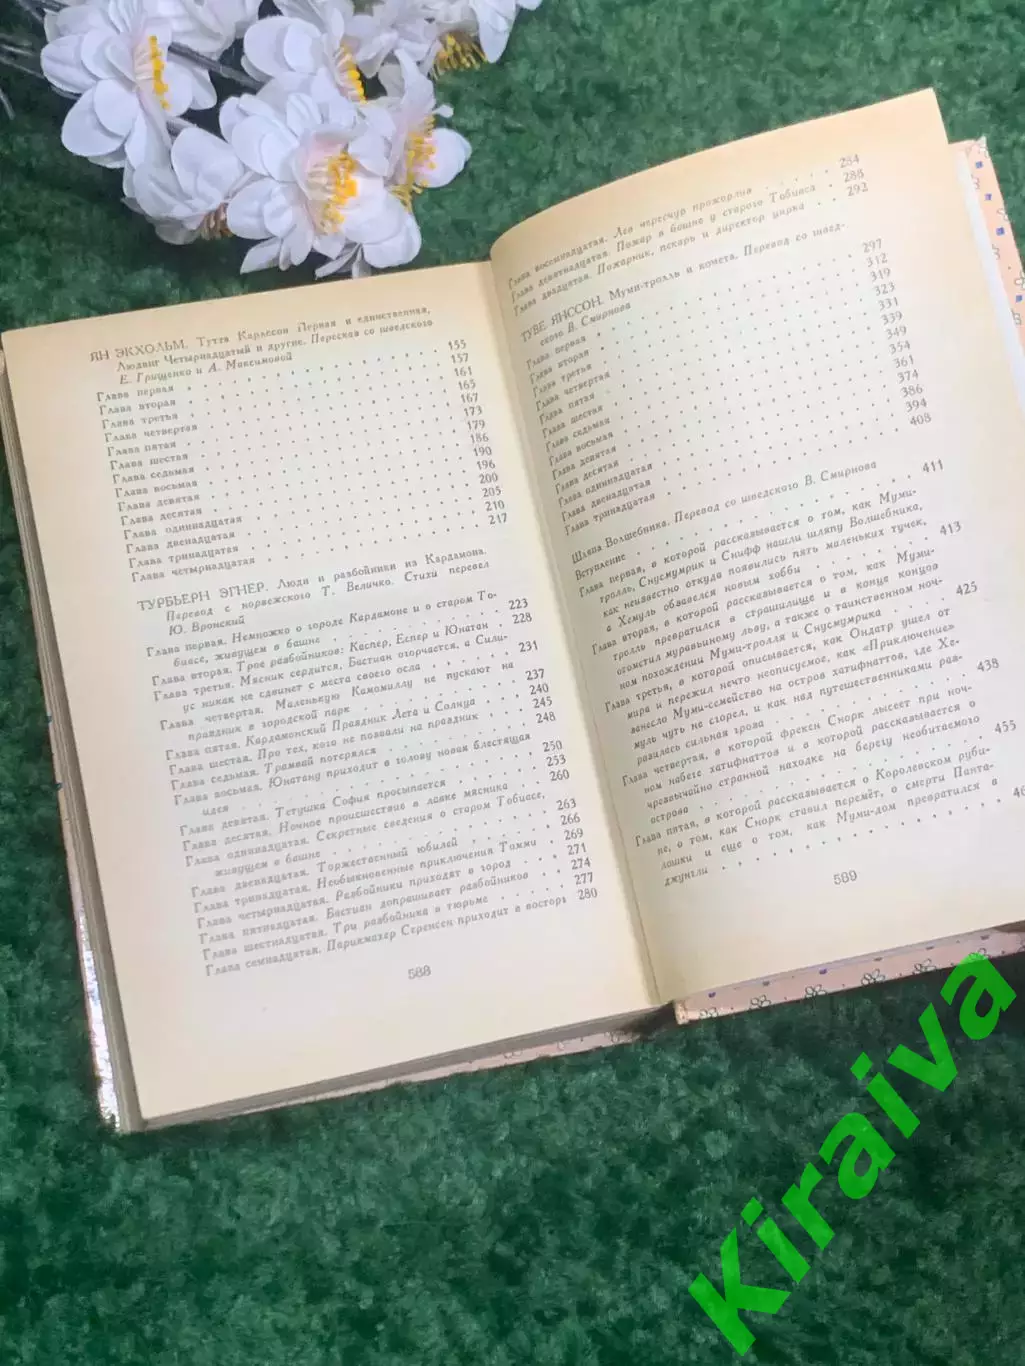 ЯН ЭКХОЛЬМ. Тутта Карлссон Первая и единственная,
Людвиг Четырнадцатый и другие. Пересказ со шведского
Е. Грищенко и А. Максимовой . . . . . 155
Глава первая . . . . . 157
Глава вторая . . . . . 161
Глава третья . . . . . 165
Глава четвертая . . . . . 167
Глава пятая . . . . . 173
Глава шестая . . . . . 179
Глава седьмая . . . . . 186
Глава восьмая . . . . . 190
Глава девятая . . . . . 196
Глава десятая . . . . . 200
Глава одиннадцатая . . . . . 205
Глава двенадцатая . . . . . 210
Глава тринадцатая . . . . . 217
Глава четырнадцатая
ТУРБЬЕРН ЭГНЕР. Люди и разбойники из Кардамона.
Перевод с норвежского Т. Величко. Стихи перевел
Ю. Вронский
Глава первая. Немножко о городе Кардамоне и о старом То-
биасе, живущем в башне . . . . . 223
Глава вторая. Трое разбойников: Каспер, Еспер и Юнатан . 228
Глава третья. Мясник сердится, Бастиан огорчается, а Сили-
ус никак не сдвинет с места своего осла . . . . . 231
Глава четвертая. Маленькую Камомиллу не пускают на
праздник в городской парк . . . . . 237
Глава пятая. Кардамонский Праздник Лета и Солнца . . . 240
Глава шестая. Про тех, кого не позвали на праздник . . . 245
Глава седьмая. Трамвай потерялся . . . . . 248
Глава восьмая. Юнатану приходит в голову новая блестящая
идея . . . . . 250
Глава девятая. Тетушка София просыпается . . . . . 253
Глава десятая. Ночное происшествие в лавке мясника . . . 260
Глава одиннадцатая. Секретные сведения о старом Тобиасе,
живущем в башне . . . . . 263
Глава двенадцатая. Торжественный юбилей . . . . . 266
Глава тринадцатая. Необыкновенные приключения Томми . 269
Глава четырнадцатая. Разбойники приходят в город . . . 271
Глава пятнадцатая. Бастиан допрашивает разбойников . . . 274
Глава шестнадцатая. Три разбойника в тюрьме . . . . 277
Глава семнадцатая. Парикмахер Серенсен приходит в восторг 280
588
Глава восемнадцатая. Лев чересчур прожорлив . . . . . 284
Глава девятнадцатая. Пожар в башне у старого Тобиаса . 288
Глава двадцатая. Пожарник, пекарь и директор цирка . . 292
ТУВЕ ЯНССОН. Муми-тролль и комета. Перевод со швед-
ского В. Смирнова . . . . . 297
Глава первая . . . . . 312
Глава вторая . . . . . 319
Глава третья . . . . . 323
Глава четвертая . . . . . 331
Глава пятая . . . . . 339
Глава шестая . . . . . 349
Глава седьмая . . . . . 354
Глава восьмая . . . . . 361
Глава девятая . . . . . 374
Глава десятая . . . . . 386
Глава одиннадцатая . . . . . 394
Глава двенадцатая . . . . . 408
Глава тринадцатая
Шляпа Волшебника. Перевод со шведского В. Смирнова
Вступление . . . . . 411
Глава первая, в которой рассказывается о том, как Муми-
тролль, Снусмумрик и Снифф нашли шляпу Волшебника,
как неизвестно откуда появились пять маленьких тучек,
а Хемуль обзавелся новым хобби . . . . . 413
Глава вторая, в которой рассказывается о том, как Муми-
тролль превратился в страшилище и в конце концов
отомстил муравьиному льву, а также о таинственном ноч-
ном похождении Муми-тролля и Снусмумрика . . . 425
Глава третья, в которой описывается, как Ондатр ушел от
мира и пережил нечто неописуемое, как «Приключение»
занесло Муми-семейство на остров хатифнаттов, где Хе-
муль чуть не сгорел, и как над путешественниками раз-
разилась сильная гроза . . . . . 438
Глава четвертая, в которой фрекен Снорк лысеет при ноч-
ном набеге хатифнаттов и в которой рассказывается о
чрезвычайно странной находке на берегу необитаемого
острова . . . . . 455
Глава пятая, в которой рассказывается о Королевском руби-
не, о том, как Снорк ставил перемёт, о смерти Панта-
лошки и еще о том, как Муми-дом превратился в
джунгли . . . . . 46
589
Kiraiva